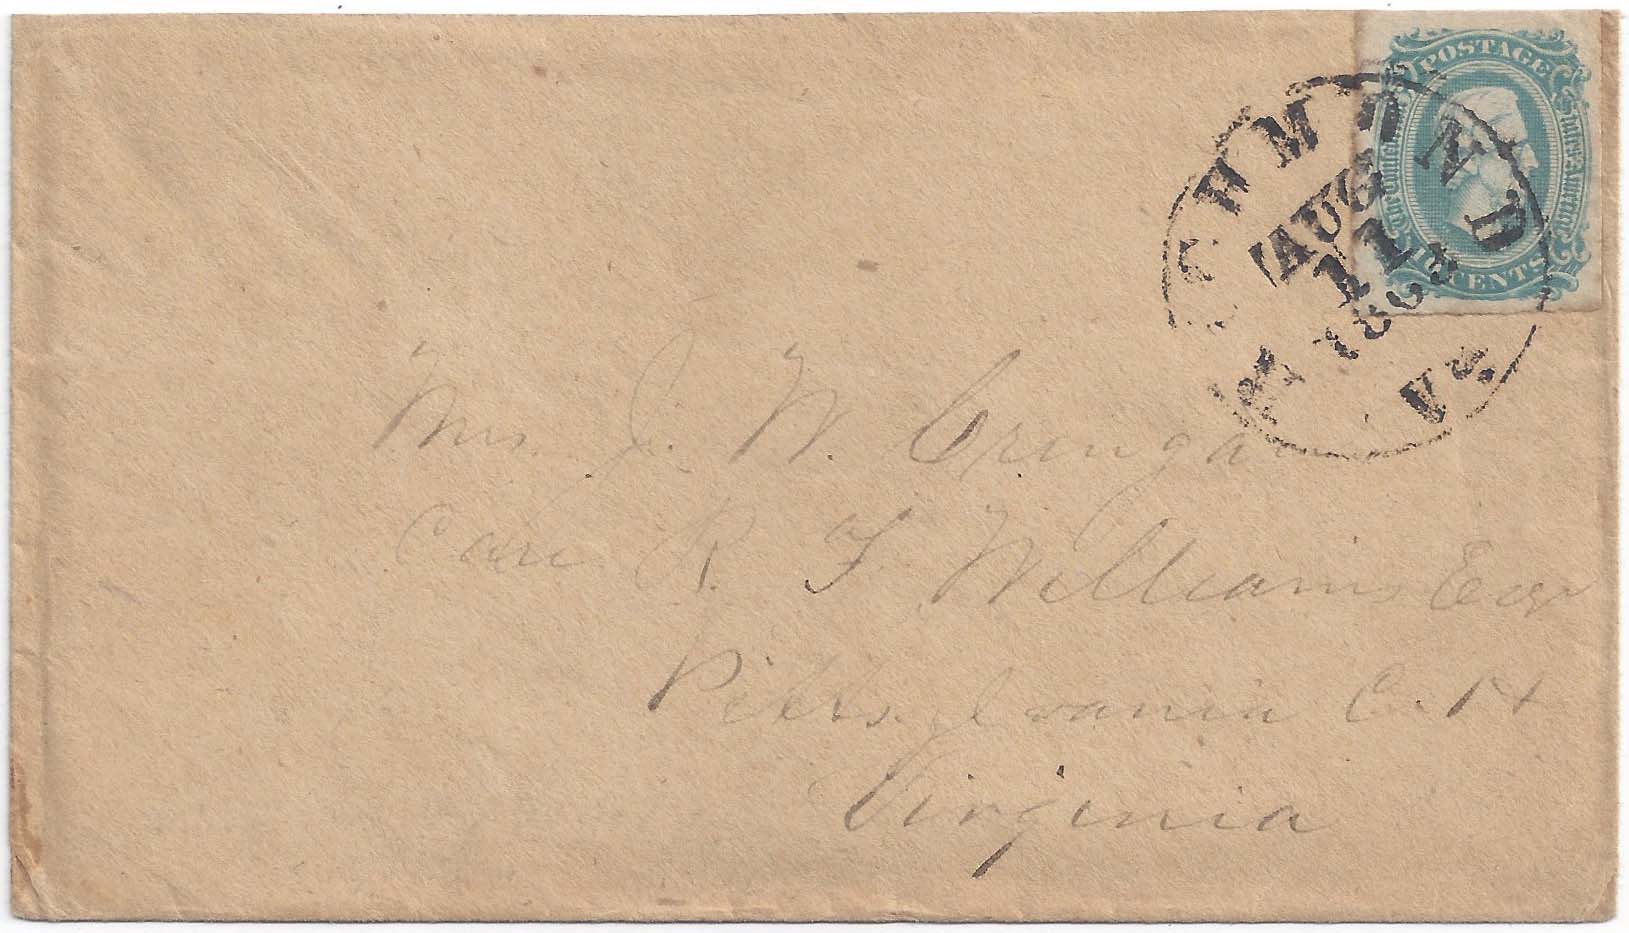 POSTAGE
Confederate States America
10 CENTS
RICHMOND
AUG
11
1863
VA.
Mrs J. W.
Care R. F. Williams Esqr
Pittsylvania C. H
Virginia